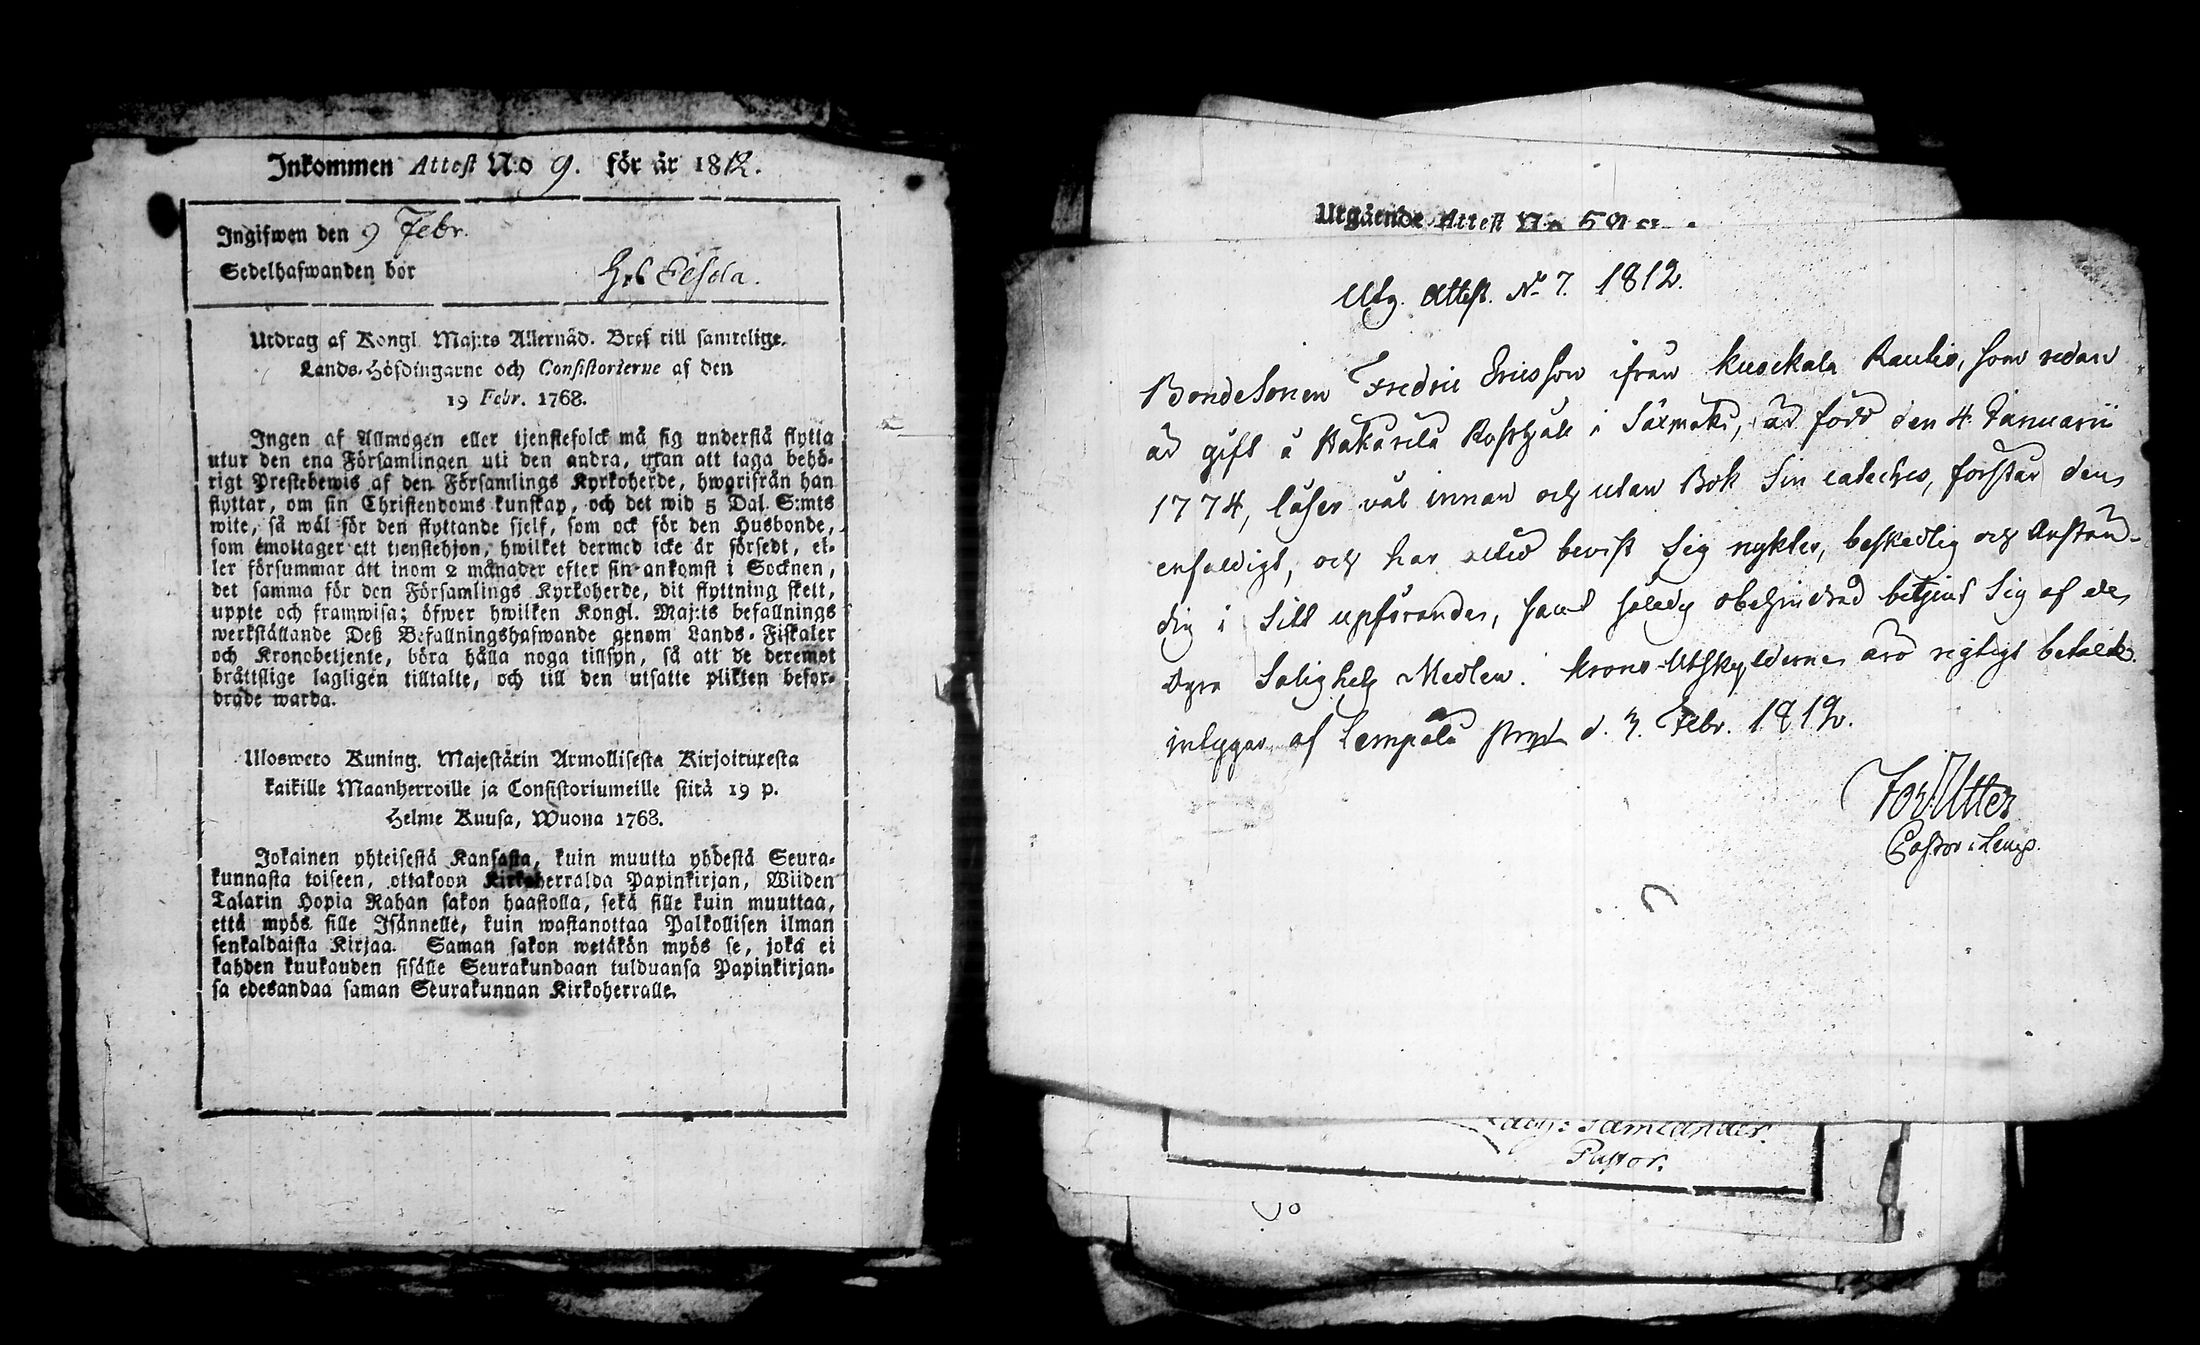 Inkommen Attest N:o 9. för år 1812.
Ingifwen den 9 Febr.
Sedelhafwanden bor
Utdrag af Kongl. Maj:ts Allernåd. Bref till samtelige.
Lands-Höfdingarne och Consistorierne af den
19 Febr. 1768.
Ingen af Allmogen eller tjenstefolck må sig understå flytta
utur den ena Församlingen uti den andra, utan att taga behö-
rigt Prestebewis af den Församlings Kyrkoherde, hwarifrån han
flyttar, om sin Christendoms kunskap, och det wid 5 Dal. S:mts
wite, så wäl för den flyttande sjelf, som ock för den Husbonde,
som emottager ett tienstehjon, hwilket dermed icke är försedt, el-
ler försummar att inom 2 månader efter sin ankomst i Socknen,
det samma för den Församlings Kyrkoherde, dit flyttning skett,
uppte och framwisa; öfwer hwilken Kongl. Maj:ts befallnings
werkställande Deß Befallningshafwande genom Lands-Fiskaler
och Kronobetjente, böra hålla noga tillsyn, så att de deremot
bråttslige lagligen tilltalte, och till den utsatte plikten befor-
drade warda.
Ulosweto Kuning. Majestätin Armollisesta Kirjoituxesta
kaikille Maanherroille ja Consistoriumeille siitä 19 p.
Helme Kuusa, Wuona 1768.
Jokainen yhteisestä Kansasta, kuin muutta yhdestä Seura-
kunnasta toiseen, ottakoon Kirkoherralda Papinkirjan, Wiiden
Talarin Hopia Rahan sakon haastolla, sekä sille kuin muuttaa,
että myös sille Isännelle, kuin wastanottaa Palkollisen ilman
senkaldaista Kirjaa. Saman sakon wetäkön myös se, joka ei
kahden kuukauden sisälle Seurakundaan tulduansa Papinkirjan-
sa edesandaa saman Seurakunnan Kirkoherralle.
Utgående Attest N:o
Utg. Attest. No 7. 1812.
Bondesonen Fredric Ericsson ifrån Kuockala Rautio, som redan
är gift å Hakarila Rusthåll i Säxmäki, är född den 4 Januarii
1774, läser väl innan och utan Bok Sin cateches, förstår den
enfaldigt, och har altid bevist Sig nykter, beskedlig och Anstän-
dig i Sitt upförande, samt således obehindrad betjent Sig af de
dyra Salighets Medlen. Krono-Utskylderne äro rigtigt betalte.
intygar af Lempälä d. 3. Febr. 1812.
Pastor i Lemp.
Pastor.